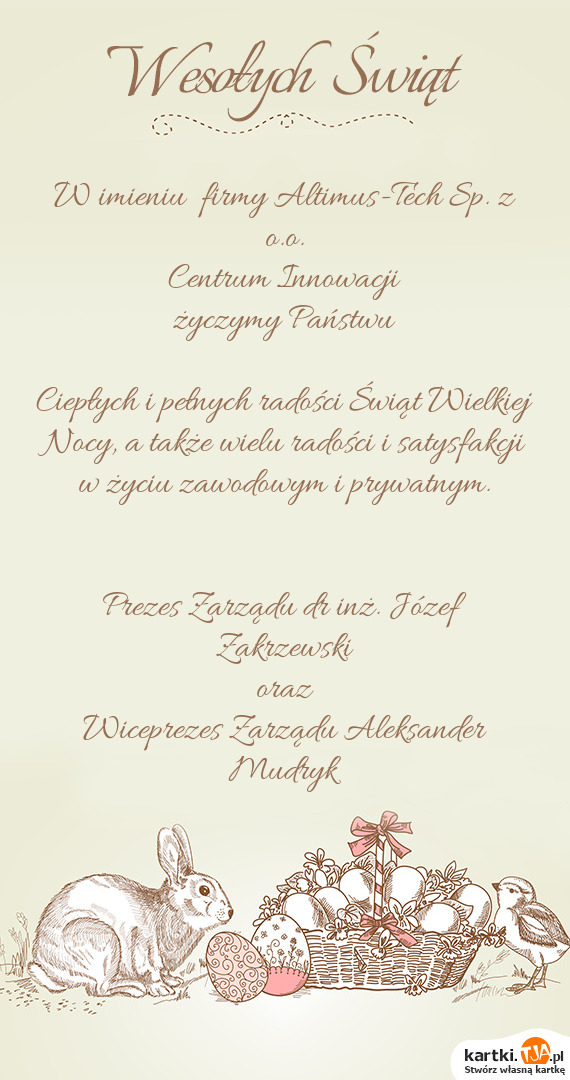 Wesołych Świąt
W imieniu firmy Altimus-Tech Sp. z
o.o.
Centrum Innowacji
życzymy Państwu
Ciepłych i pełnych radości Świąt Wielkiej
Nocy, a także wielu radości i satysfakcji
w życiu zawodowym i prywatnym.
Prezes Zarządu dr inż. Józef
Zakrzewski
oraz
Wiceprezes Zarządu Aleksander
Mudryk
kartki.TJA.pl
Stwórz własną kartkę